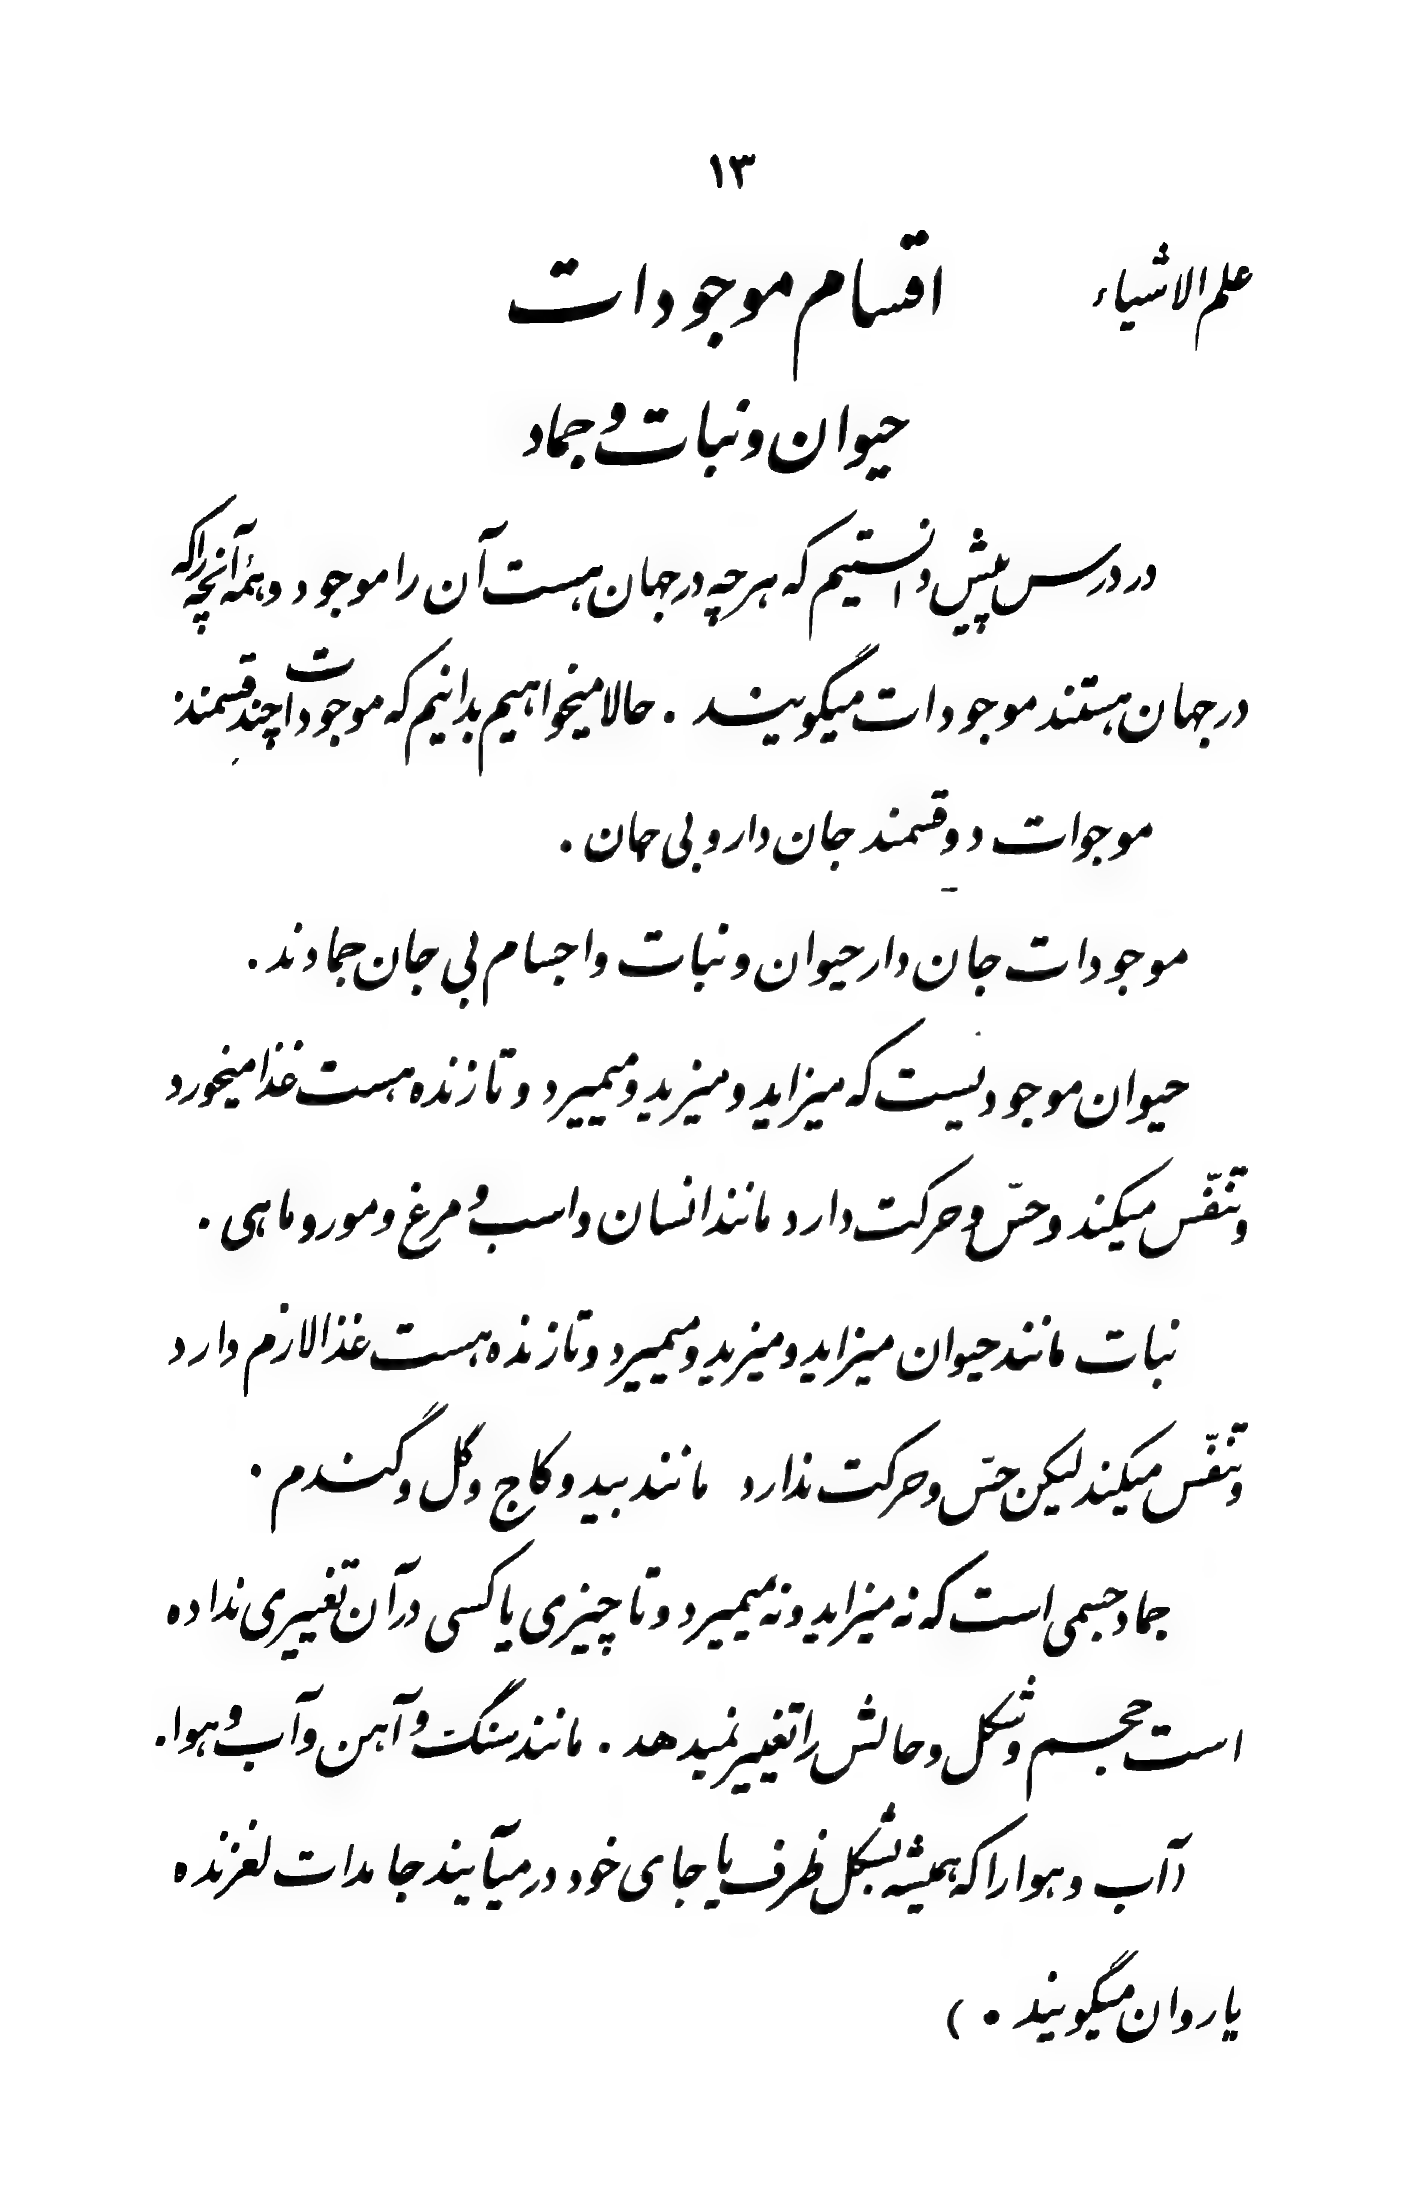 ۱۳
علم الاشیاء
اقسام موجودات
حیوان و نبات و جماد
در درس پیش دانستیم که هر چه در جهان هست آن را موجود و همهٔ آنچه را که
در جهان هستند موجودات میگویند . حالا میخواهیم بدانیم که موجودات چند قسمند
موجوات دو قسمند جان دار و بی جان .
موجودات جان دار حیوان و نبات و اجسام بی جان جمادند .
حیوان موجودیست که میزاید و میزید و میمیرد و تا زنده هست غذا میخورد
و تنفّس میکند و حسّ و حرکت دارد مانند انسان و اسب و مرغ و مور و ماهی .
نبات مانند حیوان میزاید و میزید و میمیرد و تا زنده هست غذا لازم دارد
و تنفّس میکند لیکن حسّ و حرکت ندارد مانند بید و کاج و گل و گندم .
جماد جسمی است که نه میزاید و نه میمیرد و تا چیزی یا کسی در آن تغییری نداده
است حجم و شکل و حالش را تغییر نمیدهد . مانند سنگ و آهن و آب و هوا .
( آب و هوا را که همیشه بشکل ظرف یا جای خود در میآیند جامدات لغزنده
یا روان میگویند . )